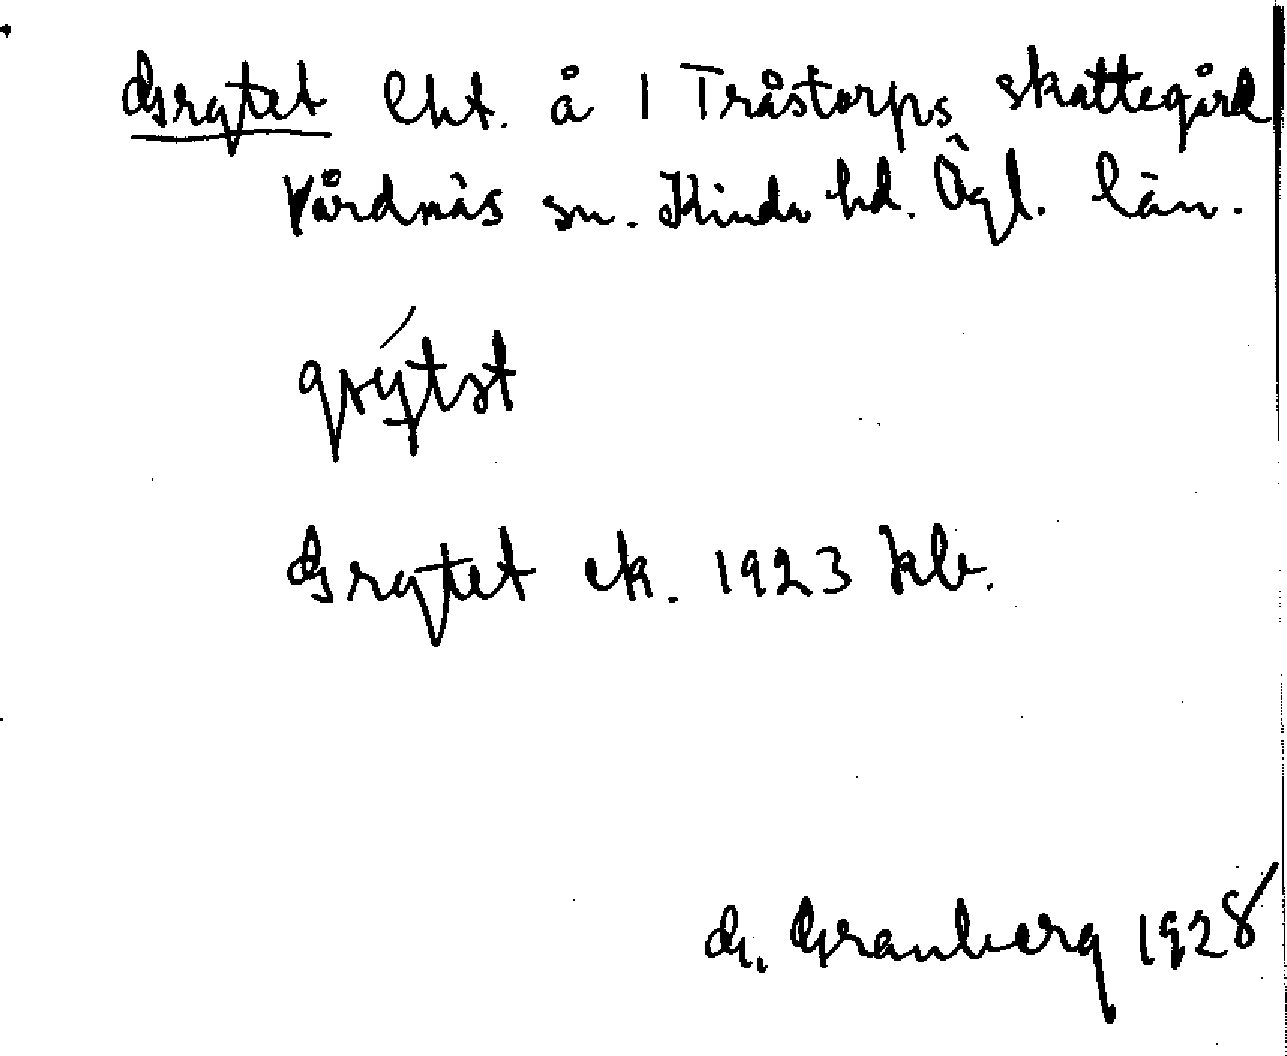 Grytet lht. å 1 Tråstorps skattegård
Vårdnäs sn. Kinda hd. Ögl. län.
grýtət
Grytet ek. 1923 kb.
G. Granberg 1928